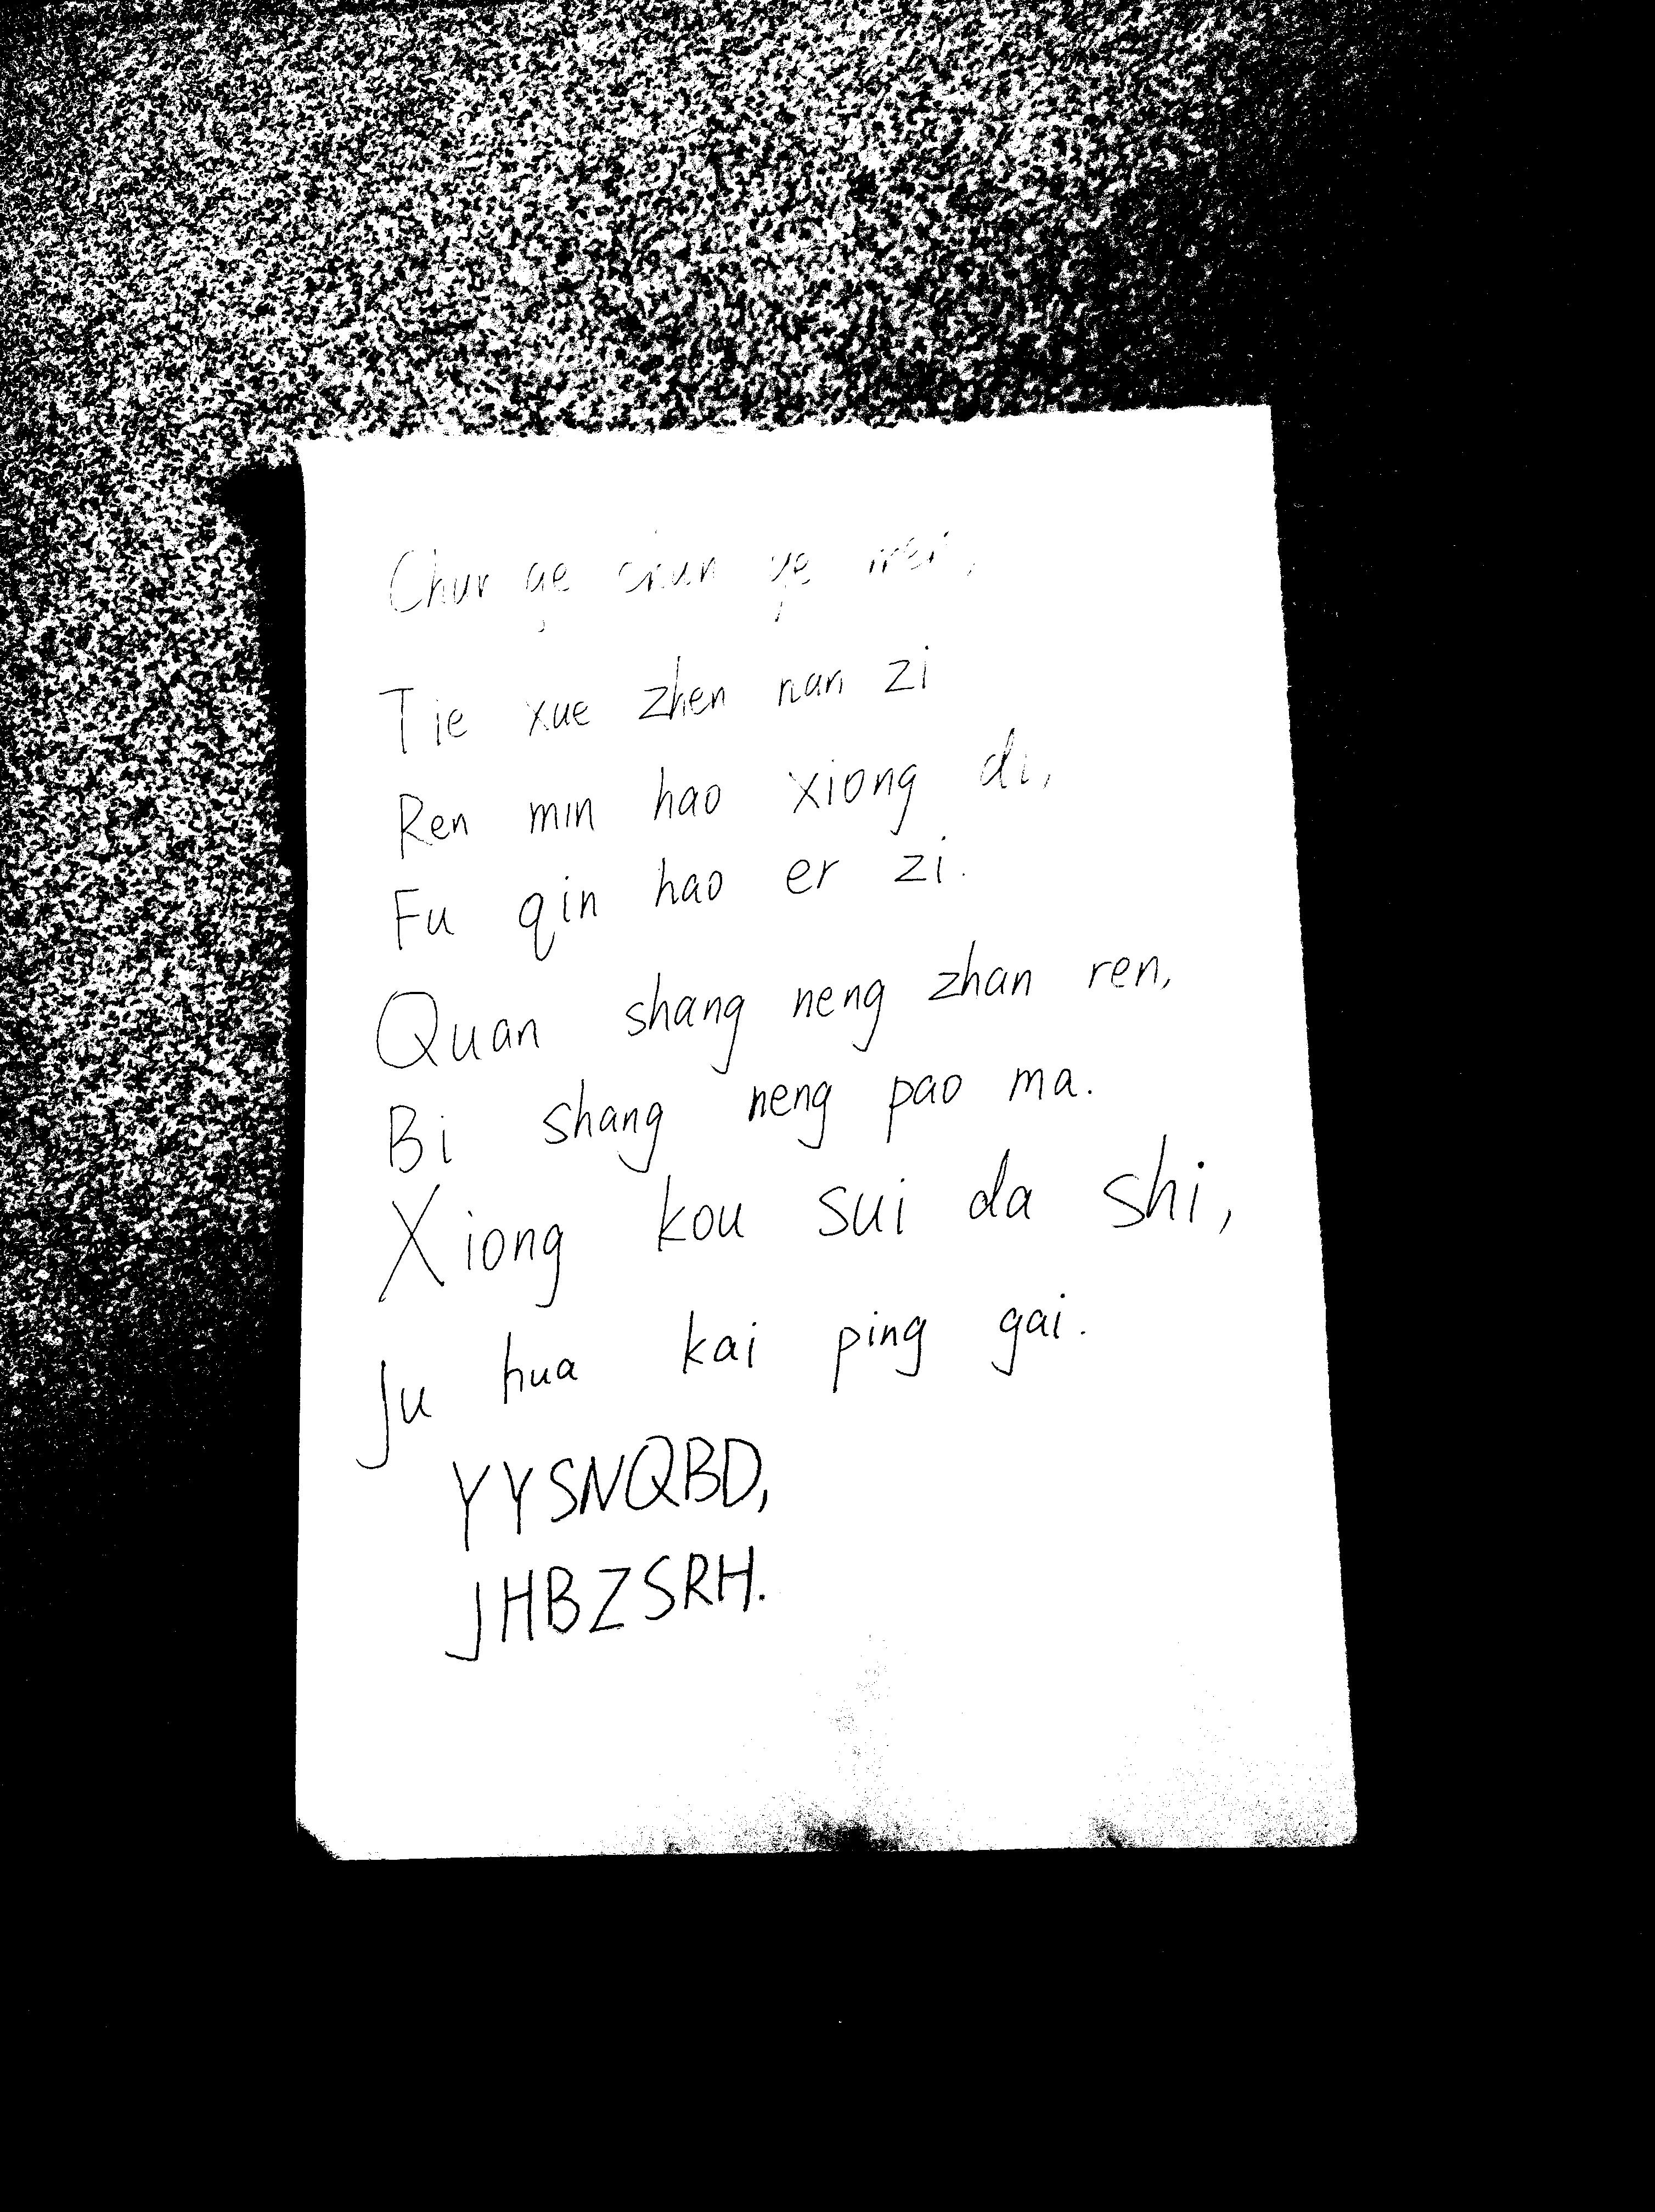 Chun ge chun ye men,
Tie xue zhen nan zi
Ren min hao xiong di,
Fu qin hao er zi.
Quan shang neng zhan ren,
Bi shang neng pao ma.
Xiong kou sui da shi,
Ju hua kai ping gai.
YYSNQBD,
JHBZSRH.